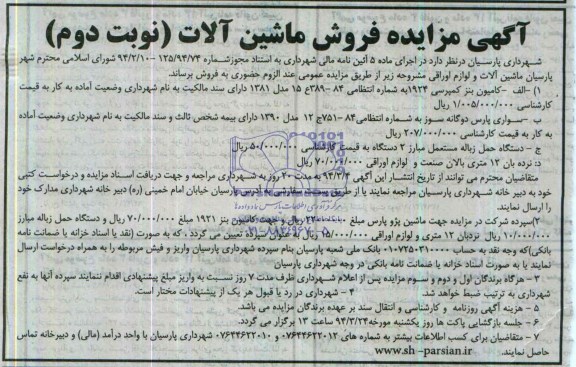 آگهی مزایده فروش ماشین آلات (نوبت دوم)
شهرداری پارسیان درنظر دارد در اجرای ماده ۵ آئین نامه مالی شهرداری به استناد مجوزشماره ۱۲۵/۹۴/۷۴ –۹۴/۲/۱۰ شورای اسلامی محترم شهر
پارسیان ماشین آلات و لوازم اوراقی مشروحه زیر از طریق مزایده عمومی عند الزوم حضوری به فروش برساند.
۱) –الف –کامیون بنز کمپرسی ۱۹۲۴به شماره انتظامی ۸۴ –۳۸۹ع ۱۵ مدل ۱۳۸۱ دارای سند مالکیت به نام شهرداری وضعیت آماده به کار به قیمت
کارشناسی ۱/۰۰۵/۰۰۰/۰۰۰ ریال
ب –سواری پارس دوگانه سوز به شماره انتظامی۸۴ –۷۵۱ج ۱۲ مدل ۱۳۹۰ دارای بیمه شخص ثالث و سند مالکیت به نام شهرداری وضعیت آماده
به کار به قیمت کارشناسی ۲۰۷/۰۰۰/۰۰۰ ریال
ج – دستگاه حمل زباله مستعمل مبارز ۲ دستگاه به قیمت کارشناسی ۵۰/۰۰۰/۰۰۰ ریال
د: نرده بان ۱۲ متری بالان صنعت و لوازم اوراقی ۷۰/۰۰۰/۰۰۰ ریال
متقاضیان محترم می توانند از تاریخ انتشار این آگهی ۹۴/۳/۳ به مدت ۲۰ روز به شهرداری مراجعه و جهت دریافت اسناد مزایده و درخواست کتبی
خود به دبیر خانه شهرداری پارسیان مراجعه نمایند یا از طریق پست سفارشی به آدرس پارسیان خیابان امام خمینی (ره) دبیر خانه شهرداری مدارک خود
را ارسال نمایند.
۲)سپرده شرکت در مزایده جهت ماشین پژو پارس مبلغ ریال و جهت کامیون بنز ۱۹۲۱ مبلغ ۷۰/۰۰۰/۰۰۰ ریال و دستگاه حمل زباله مبارز
۱۰/۰۰۰/۰۰۰ ریال نردبان ۱۲ متری و لوازم اوراقی ریال به عنوان سپرده تعیین می گردد ، که به صورت (نقد یا اسناد خزانه یا ضمانت نامه
بانکی)که وجه نقد به حساب ۰۱۰۷۲۵۰۳۱۰۰۰۰ بانک ملی شعبه پارسیان بنام سپرده شهرداری پارسیان واریز و فیش مربوطه را به همراه درخواست ارسال
نمایند یا به صورت اسناد خزانه یا ضمانت نامه بانکی در وجه شهرداری پارسیان
۳ – هرگاه برندگان اول و دوم و سوم مزایده پس از اعلام شهرداری ظرف مدت ۷ روز نسبت به واریز مبلغ پیشنهادی اقدام ننمایند سپرده آنها به نفع
شهرداری به ترتیب ضبط خواهد شد. ۴ – شهرداری در رد یا قبول هر یک از پیشنهادات مختار است.
۵ – هزینه آگهی روزنامه و کارشناسی و انتقال سند بر عهده برندگان مزایده می باشد.
۶ – جلسه بازگشایی پاکت ها روز یکشنبه مورخه۹۴/۳/۲۴ ساعت ۱۳ برگزار می گردد.
۷ – متقاضیان برای کسب اطلاعات بیشتر به شماره های ۰۷۶۴۴۶۲۲۰۱۲ و ۰۷۶۴۴۶۲۲۰۱۰ شهرداری پارسیان با واحد درآمد (مالی) و دبیرخانه تماس
حاصل نمایند. www.sh-parsian.ir